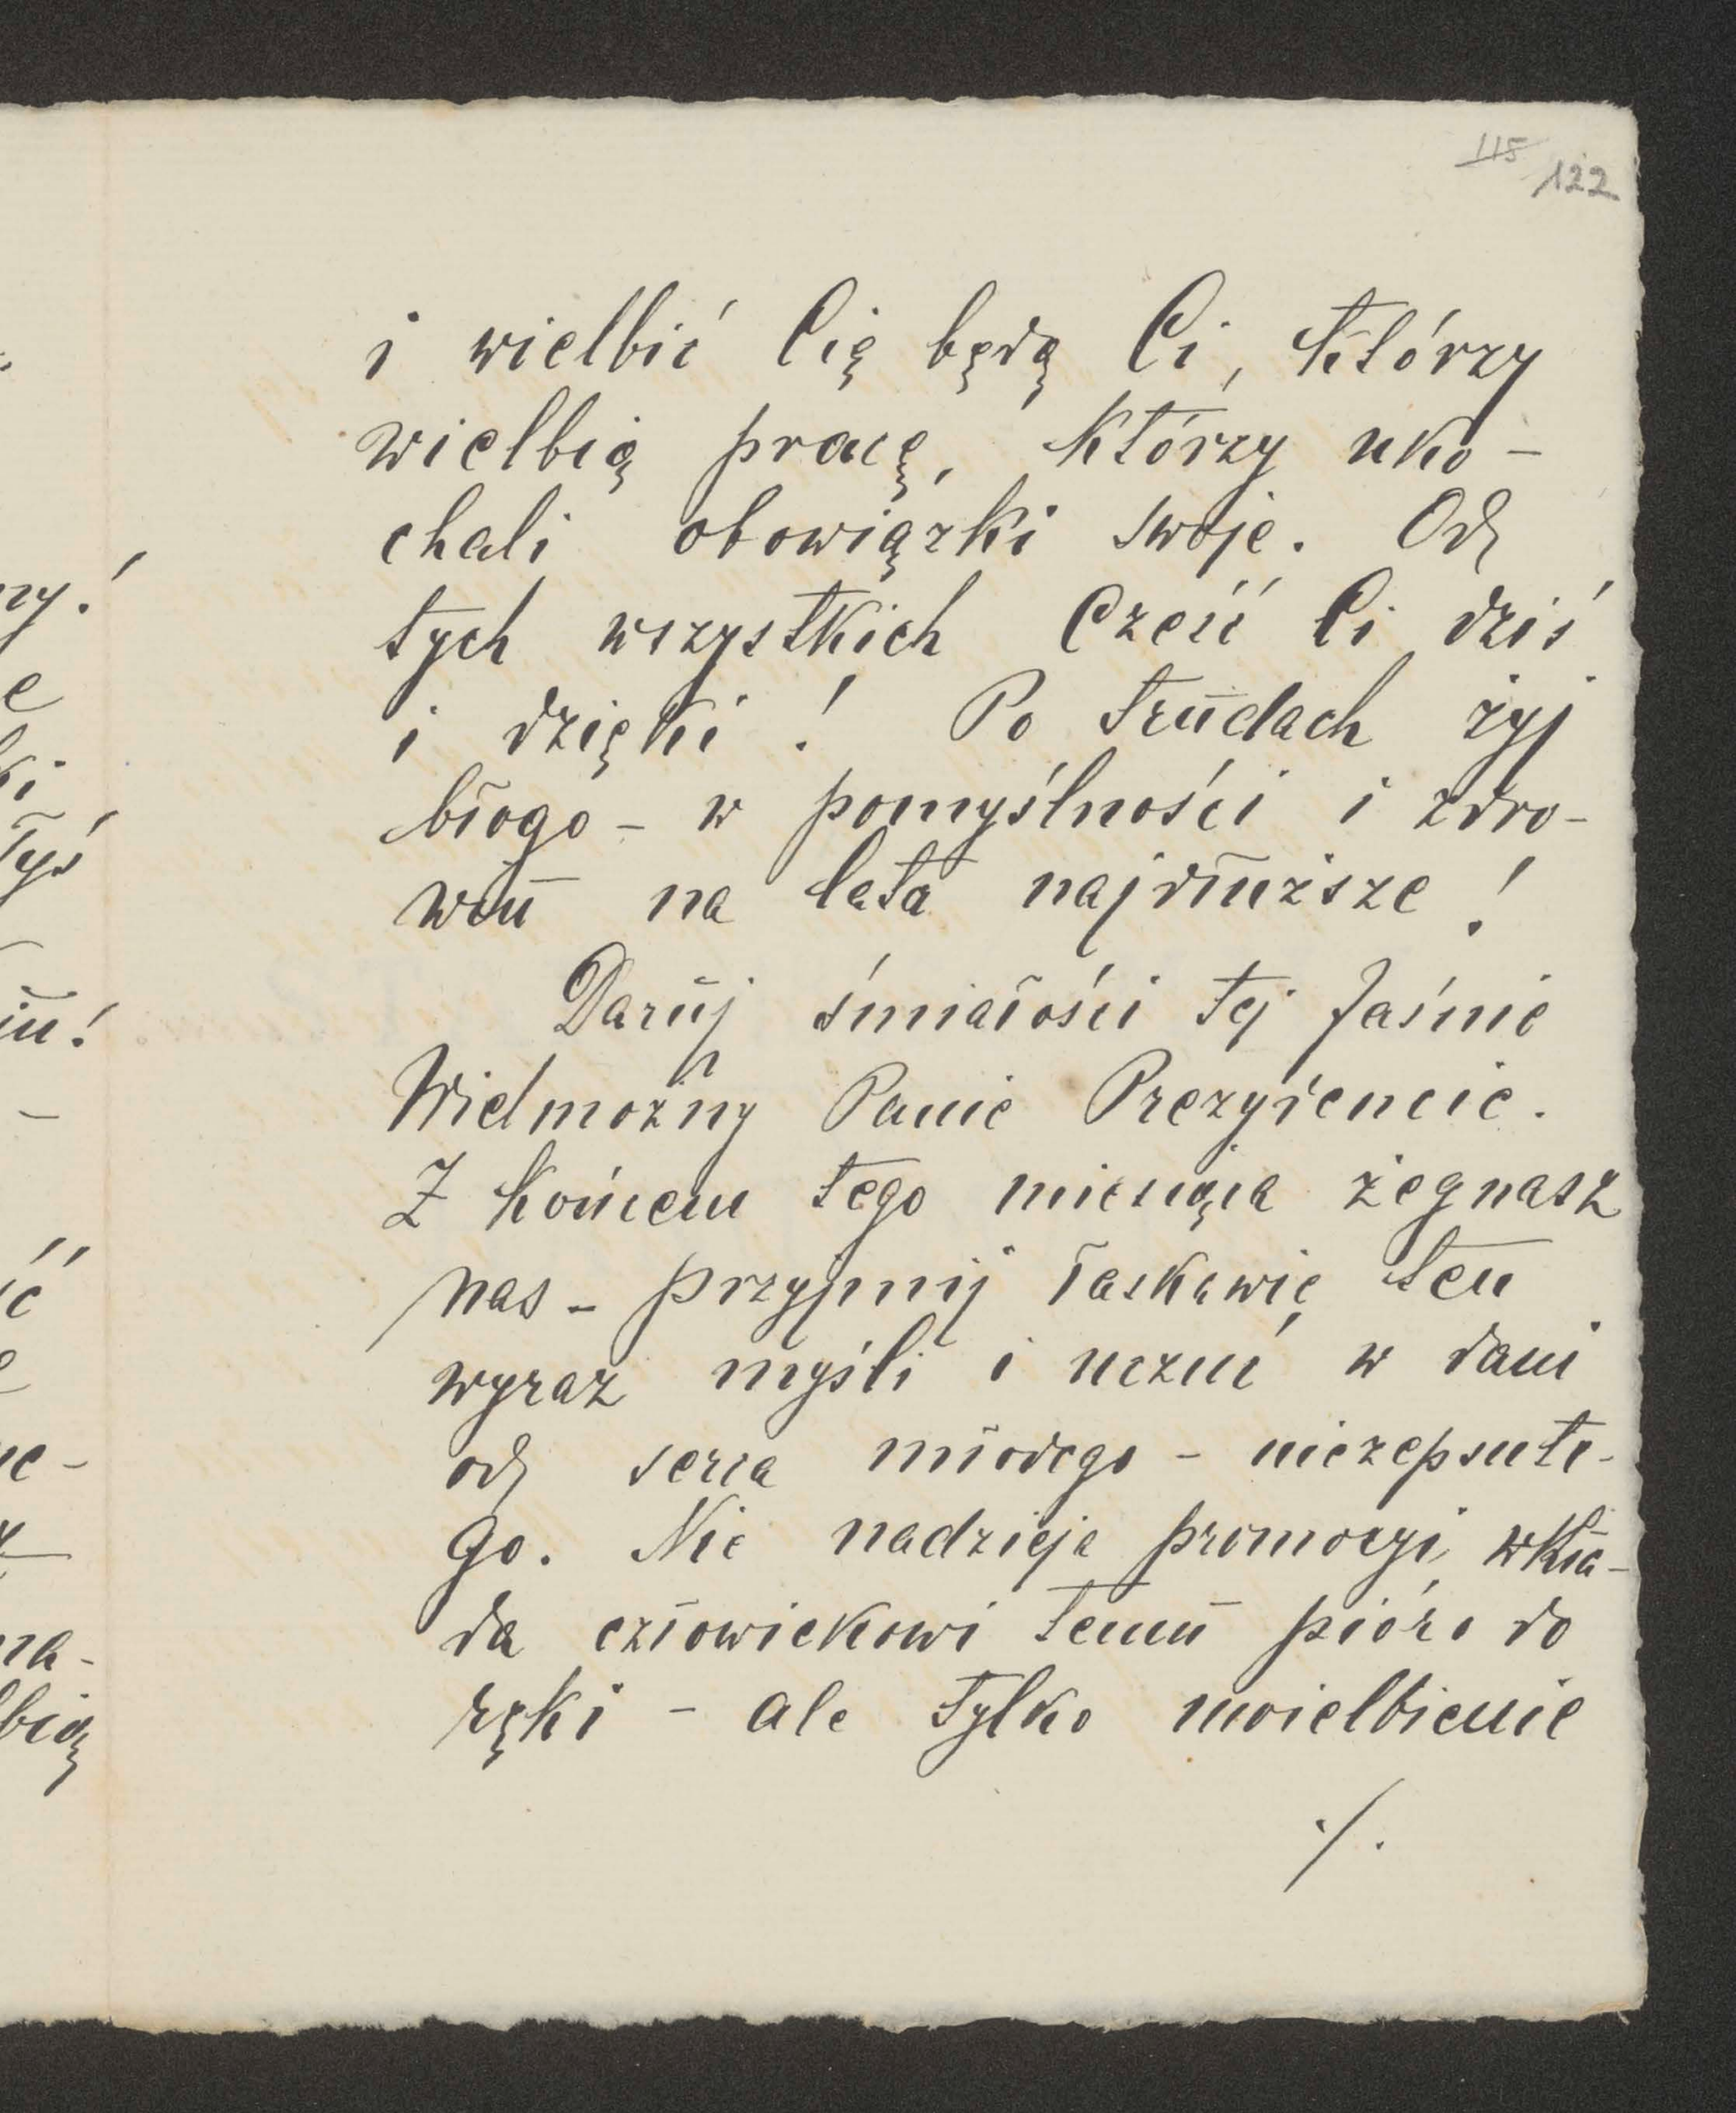 115 122
i wielbić Cię będą Ci, którzy
wielbią pracę, którzy uko-
chali obowiązki swoje. Od
tych wszystkich Cześć Ci dziś
i dzięki! Po trudach żyj
błogo - w pomyślności i zdro-
wiu na lata najdłuższe!
Daruj śmiałości tej Jaśnie
Wielmożny Panie Prezydencie.
Z końcem tego miesiąca żegnasz
nas - przyjmij łaskawie ten
wyraz myśli i uczuć w dani
od serca młodego - niezepsute-
go. Nie nadzieja promocyi wkła-
da człowiekowi temu pióro do
ręki - ale tylko uwielbienie
./.